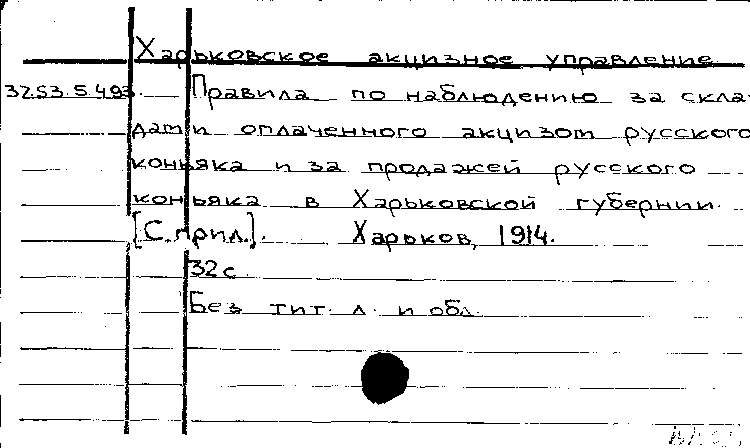 Харьковское акцизное управление
32.53.5.493. Правила по наблюдению за скла-
дами оплаченного акцизом русского
коньяка и за продажей русского
коньяка в Харьковской губернии.
[С прил.]. Харьков, 1914.
32 с
Без тит. л. и обл.